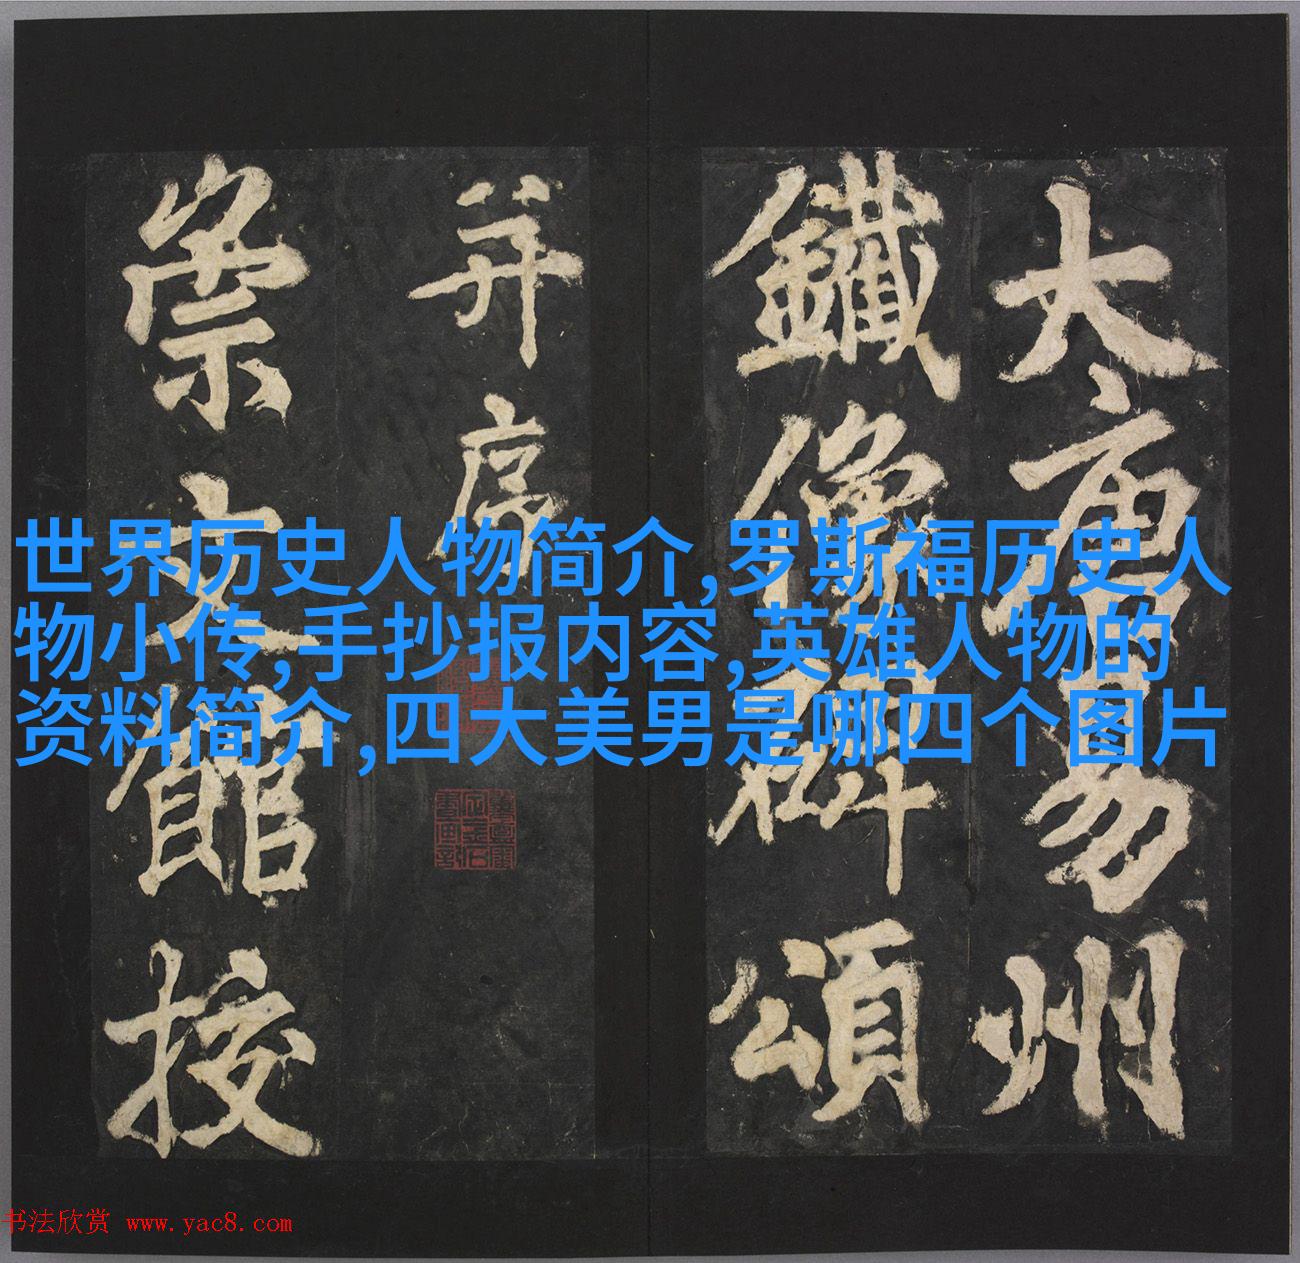 大唐易州
鐵像碑頌
并序
崇文館挍
世界历史人物简介,罗斯福历史人
物小传,手抄报内容,英雄人物的
资料简介,四大美男是哪四个图片
书法欣赏 www.yac8.com